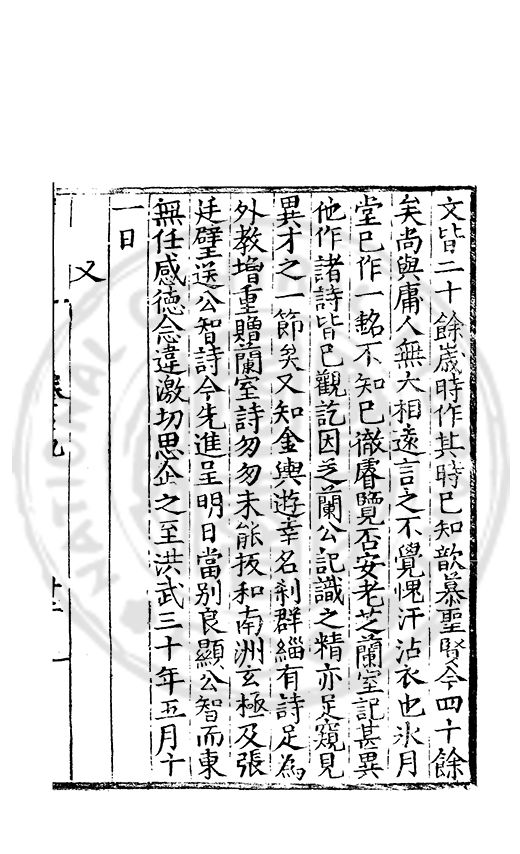 文皆二十餘歲時作其時已知歆慕聖賢今四十餘
矣尚與庸人無大相遠言之不覺愧汗沾衣也氷月
堂已作一銘不知已徹睿覽否安老芝蘭室記甚異
他作諸詩皆已觀訖因乏蘭公記識之精亦足窺見
異才之一節矣又知金輿遊幸名剎群緇有詩足為
外教增重贈蘭室詩匆匆未能扳和南洲玄極及張
廷璧送公智詩今先進呈明日當別良顯公智而東
無任感德念違激切思企之至洪武三十年五月十
一日
又
NATIONAL